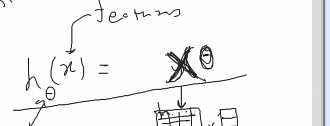 features
h_θ(x) = Xθ